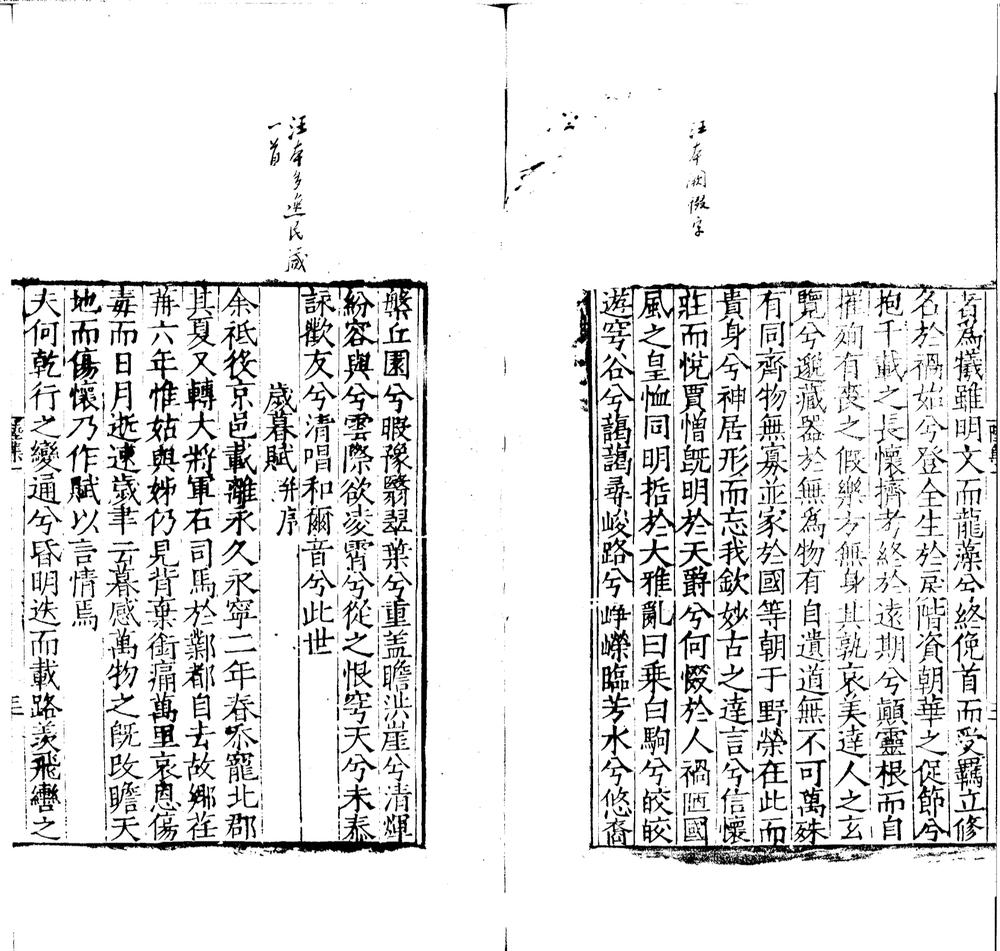 汪本闕假字
名為犧雖明文而龍藻兮終俛首而受羈立修
名於禍始兮登全生於戻階資朝華之促節兮
抱千載之長懷擠考終於遠期兮顛靈根而自
摧殉有喪之假樂方無身其孰哀美達人之玄
覽兮邈藏器於無為物有自遺道無不可萬殊
有同齊物無寡並家於國等朝于野榮在此而
貴身兮神居形而忘我欽妙古之達言兮信懷
莊而悅賈憎旣明於天爵兮何惙於人禍匝國
風之皇恤同明哲於大雅亂曰乘白駒兮皎皎
遊穹谷兮藹藹尋峻路兮崢嶸臨芳水兮悠裔
汪本多逸民箴
一首
槃丘園兮暇豫翳翠葉兮重盖瞻洪崖兮清輝
紛容與兮雲際欲淩霄兮從之恨穹天兮未泰
詠歡友兮清唱和爾音兮此世
歲暮賦 并序
余祗役京邑載離永久永寧二年春忝寵北郡
其夏又轉大將軍右司馬於鄴都自去故鄉荏
苒六年惟姑與姊仍見背棄銜痛萬里哀思傷
毒而日月逝速歲聿云暮感萬物之旣改瞻天
地而傷懷乃作賦以言情焉
夫何乾行之變通兮昏明迭而載路羨飛轡之